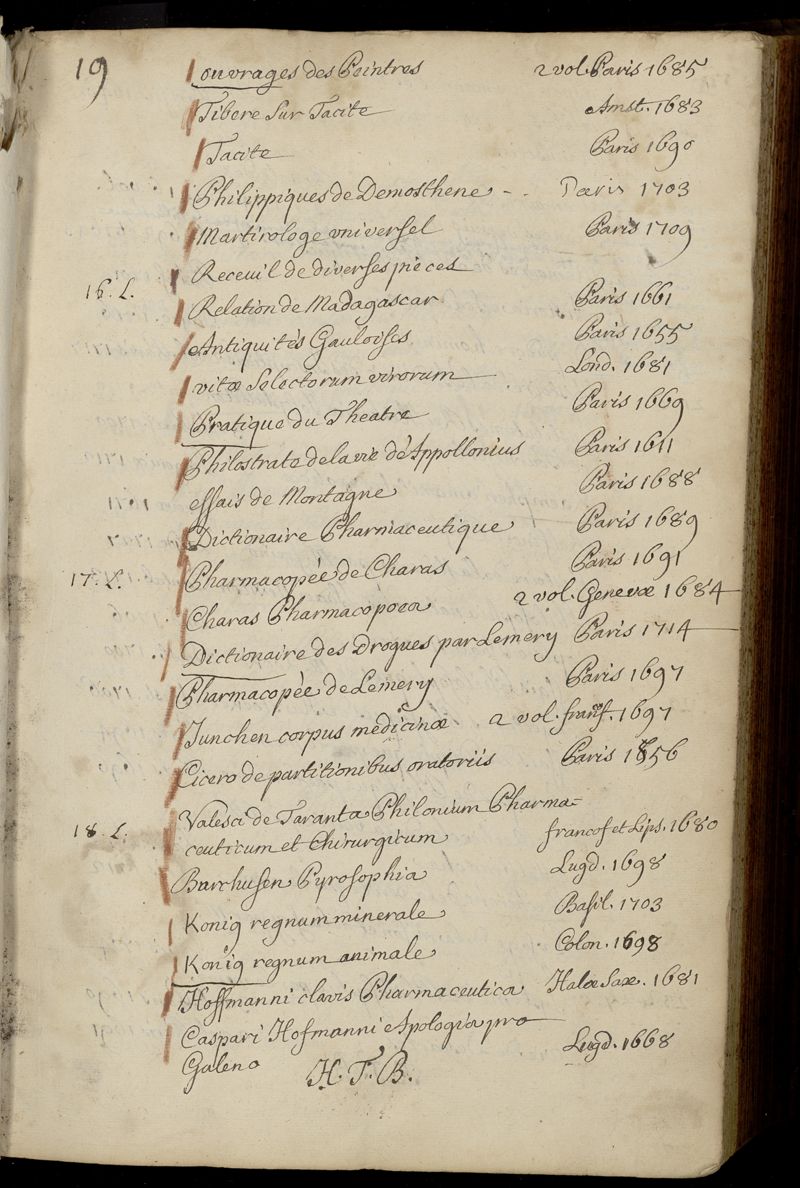 19
ouvrages des Peintres 2 vol. Paris 1685
Tibere Sur Tacite Amst. 1683
Tacite Paris 1690
Philippiques de Demosthene - . Paris 1703
Martirologe vniversel Paris 1709
Receuil de diverses pieces
16. L. Relation de Madagascar Paris 1661
Antiquités Gauloises Paris 1655
vitæ Selectorum virorum Lond. 1681
Pratique du Theatre Paris 1669
Philostrate de la vie d'Appollonius Paris 1611
essais de Montagne Paris 1688
Dictionaire Pharmaceutique Paris 1689
17. L. Pharmacopée de Charas Paris 1691
Charas Pharmacopoea 2 vol. Genevæ 1684
Dictionaire des Drogues par Lemery Paris 1714
Pharmacopée de Lemery Paris 1697
Junchen corpus medicinæ 2 vol. francf. 1697
Cicero de partitionibus oratoriis Paris 1656
18. L. Valesci de Taranta Philonium Pharma=
ceuticum et Chirurgicum francof et Lips. 1680
Barchusen Pyrosophia Lugd. 1698
Konig regnum minerale Basil. 1703
Konig regnum animale Colon. 1698
Hoffmanni clavis Pharmaceutica Halæ Sax. 1681
Caspari Hofmanni Apologia pro
Galeno Lugd. 1668
H. T. B.